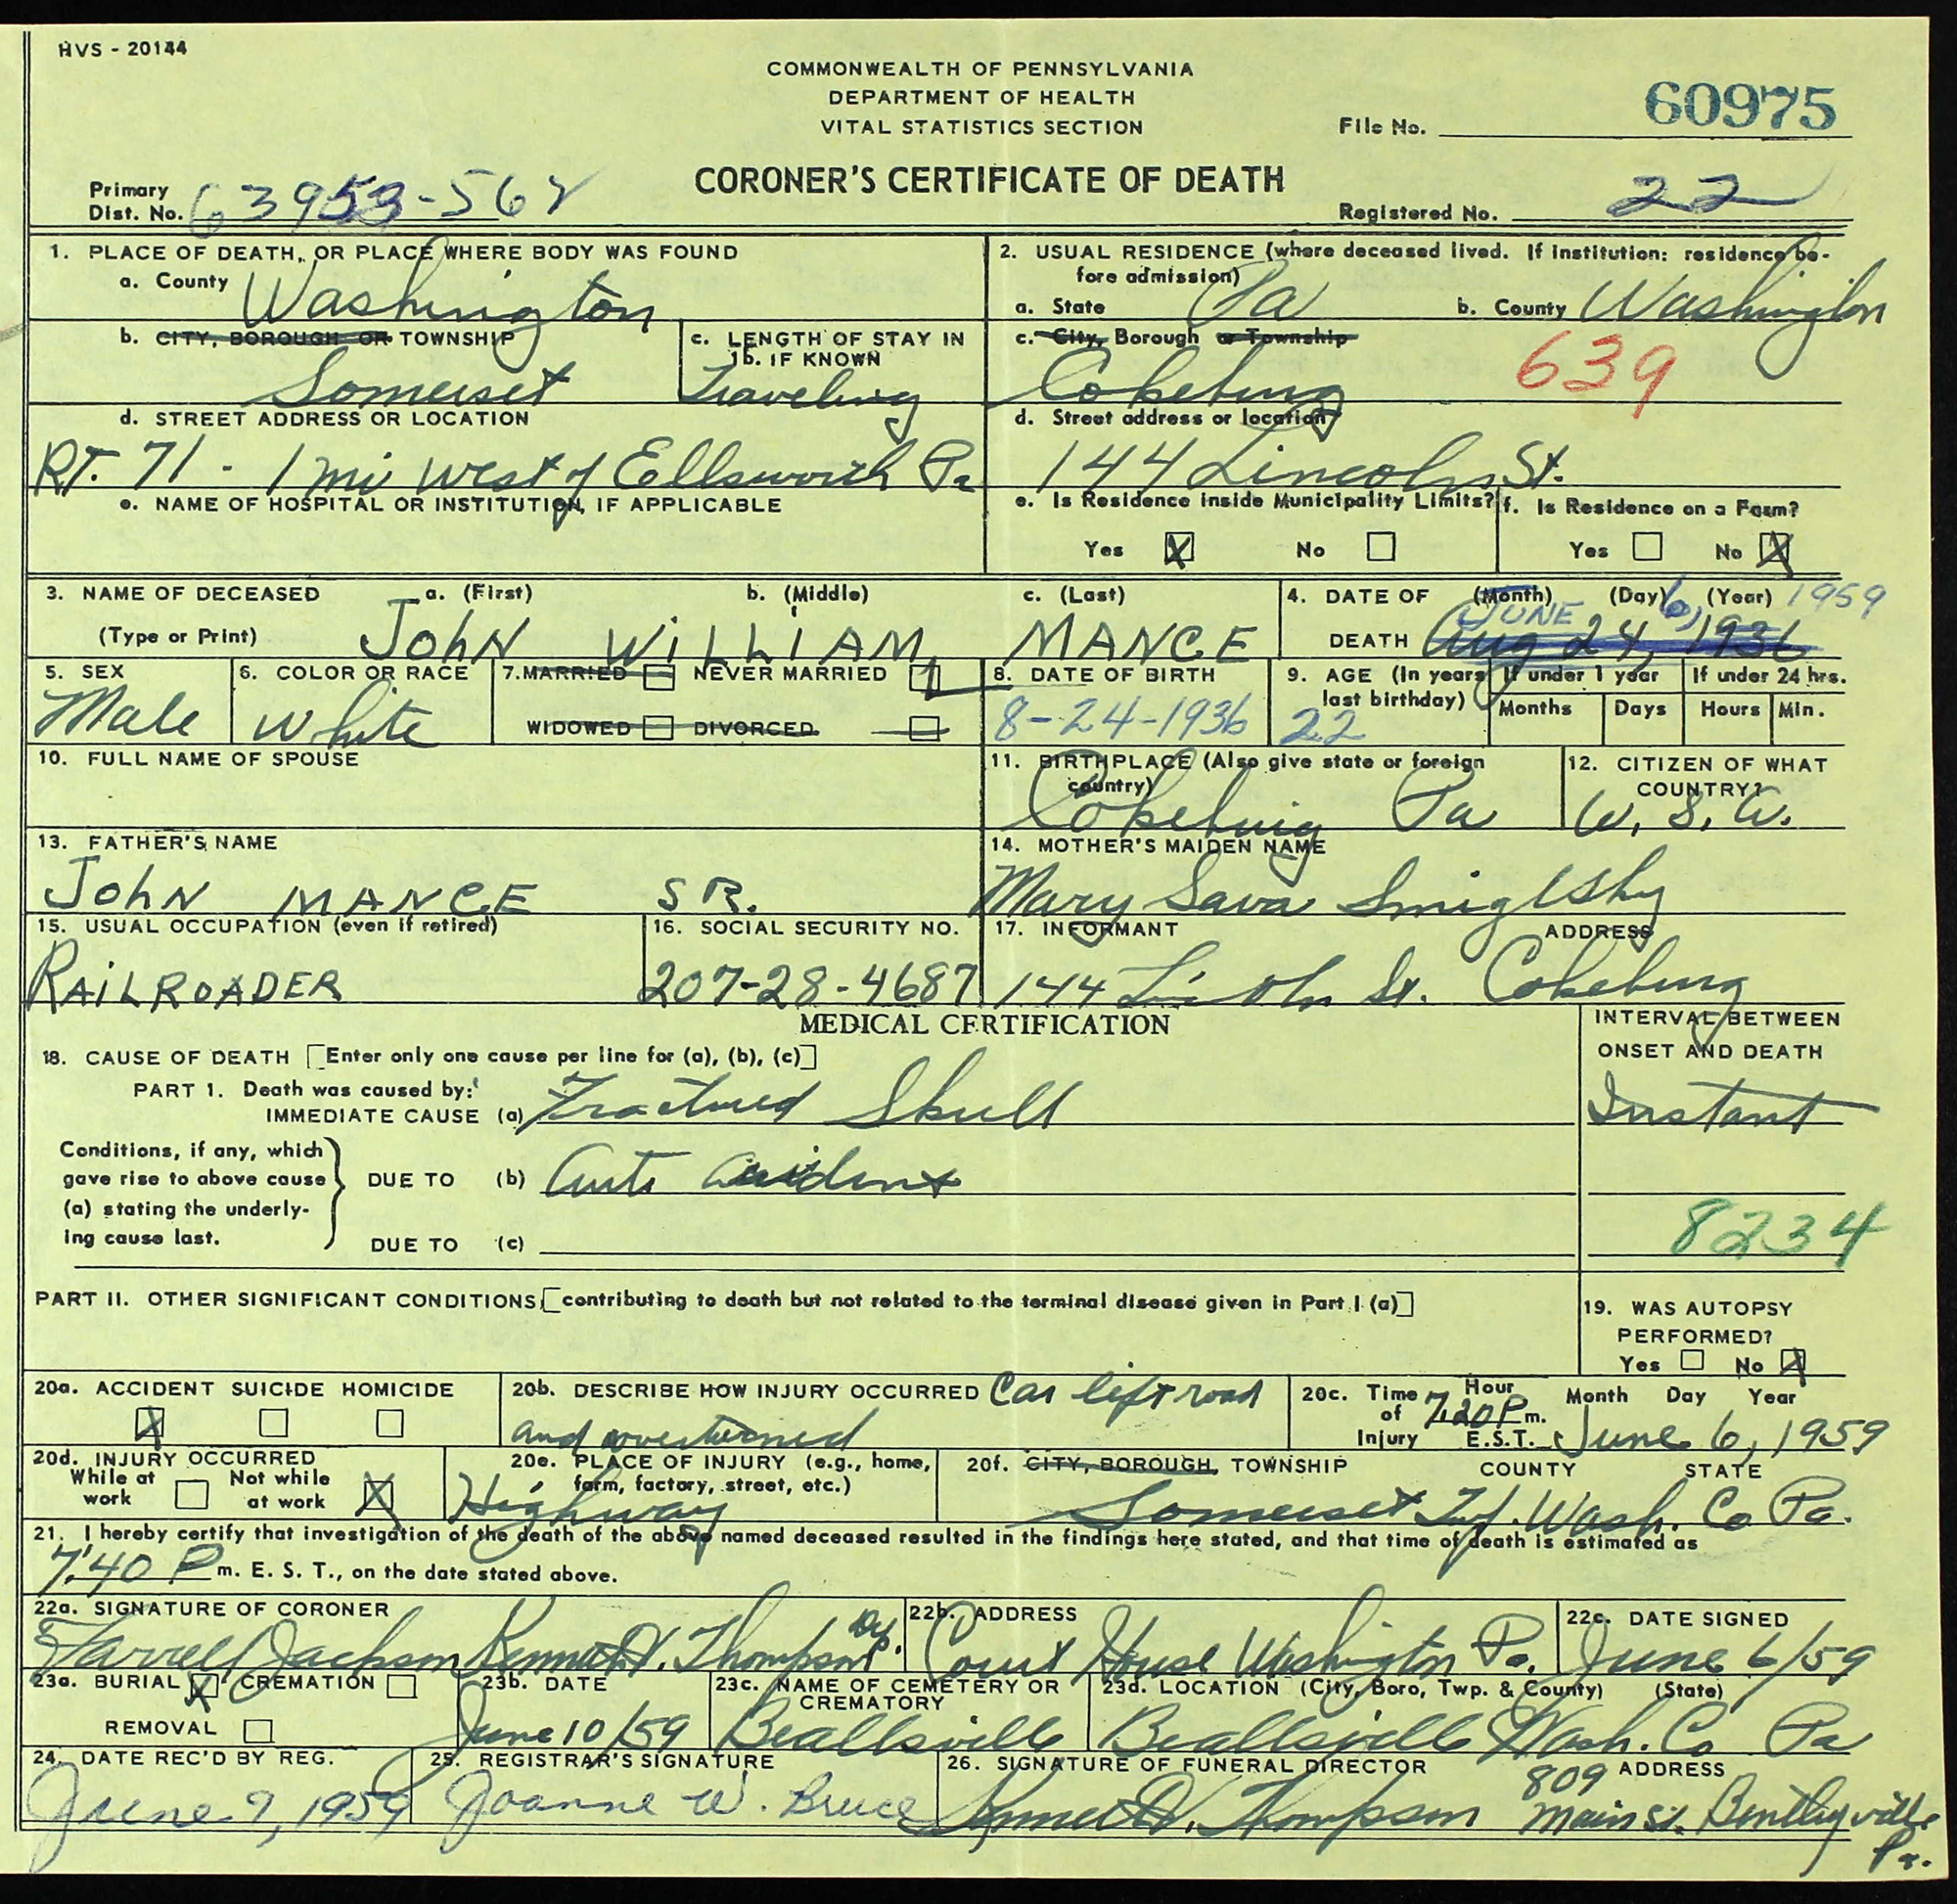 HVS - 20144
COMMONWEALTH OF PENNSYLVANIA
DEPARTMENT OF HEALTH
VITAL STATISTICS SECTION
File No. 60975
CORONER'S CERTIFICATE OF DEATH
Primary Dist. No. 63953-562
Registered No. 22
1. PLACE OF DEATH, OR PLACE WHERE BODY WAS FOUND
a. County Washington
b. CITY, BOROUGH OR TOWNSHIP
Somerset
c. LENGTH OF STAY IN 1b. IF KNOWN
Traveling
d. STREET ADDRESS OR LOCATION
RT. 71 - 1 mi west of Ellsworth Pa
e. NAME OF HOSPITAL OR INSTITUTION, IF APPLICABLE
2. USUAL RESIDENCE (where deceased lived. If institution: residence be-
fore admission)
a. State Pa b. County Washington
c. City, Borough or Township
Cokeburg 639
d. Street address or location
144 Lincoln St.
e. Is Residence inside Municipality Limits?
Yes X No
f. Is Residence on a Farm?
Yes No X
3. NAME OF DECEASED a. (First) b. (Middle) c. (Last)
(Type or Print) JOHN WILLIAM MANCE
4. DATE OF DEATH (Month) (Day) (Year)
JUNE 6, 1959
Aug 24, 1936
5. SEX
Male
6. COLOR OR RACE
White
7. MARRIED NEVER MARRIED
WIDOWED DIVORCED
8. DATE OF BIRTH
8-24-1936
9. AGE (In years last birthday)
22
If under 1 year
Months Days
If under 24 hrs.
Hours Min.
10. FULL NAME OF SPOUSE
11. BIRTHPLACE (Also give state or foreign country)
Cokeburg Pa
12. CITIZEN OF WHAT COUNTRY?
U. S. A.
13. FATHER'S NAME
JOHN MANCE SR.
14. MOTHER'S MAIDEN NAME
Mary Sava
15. USUAL OCCUPATION (even if retired)
RAILROADER
16. SOCIAL SECURITY NO.
207-28-4687
17. INFORMANT ADDRESS
144 Lincoln St. Cokeburg
MEDICAL CERTIFICATION
INTERVAL BETWEEN
ONSET AND DEATH
18. CAUSE OF DEATH [Enter only one cause per line for (a), (b), (c)]
PART 1. Death was caused by:
IMMEDIATE CAUSE (a) Fractured Skull
Instant
Conditions, if any, which
gave rise to above cause
(a) stating the underly-
ing cause last.
DUE TO (b) Auto accident
DUE TO (c)
8234
PART II. OTHER SIGNIFICANT CONDITIONS [contributing to death but not related to the terminal disease given in Part I (a)]
19. WAS AUTOPSY PERFORMED?
Yes No X
20a. ACCIDENT SUICIDE HOMICIDE
X
20b. DESCRIBE HOW INJURY OCCURRED Car left road
and overturned
20c. Time of Injury Hour Month Day Year
7:20 P m. E.S.T. June 6, 1959
20d. INJURY OCCURRED
While at work Not while at work X
20e. PLACE OF INJURY (e.g., home,
farm, factory, street, etc.)
Highway
20f. CITY, BOROUGH, TOWNSHIP COUNTY STATE
Somerset Tp. Wash. Co Pa.
21. I hereby certify that investigation of the death of the above named deceased resulted in the findings here stated, and that time of death is estimated as
7:40 P m. E. S. T., on the date stated above.
22a. SIGNATURE OF CORONER
Farrell Jackson Kenneth V. Thompson Dep.
22b. ADDRESS
Court House Washington Pa.
22c. DATE SIGNED
June 6/59
23a. BURIAL X CREMATION
REMOVAL
23b. DATE
June 10/59
23c. NAME OF CEMETERY OR CREMATORY
Beallsville
23d. LOCATION (City, Boro, Twp. & County) (State)
Beallsville Wash. Co Pa
24. DATE REC'D BY REG.
June 9, 1959
25. REGISTRAR'S SIGNATURE
Joanne W. Bruce
26. SIGNATURE OF FUNERAL DIRECTOR ADDRESS
Kenneth V. Thompson 809 Main St. Bentleyville Pa.